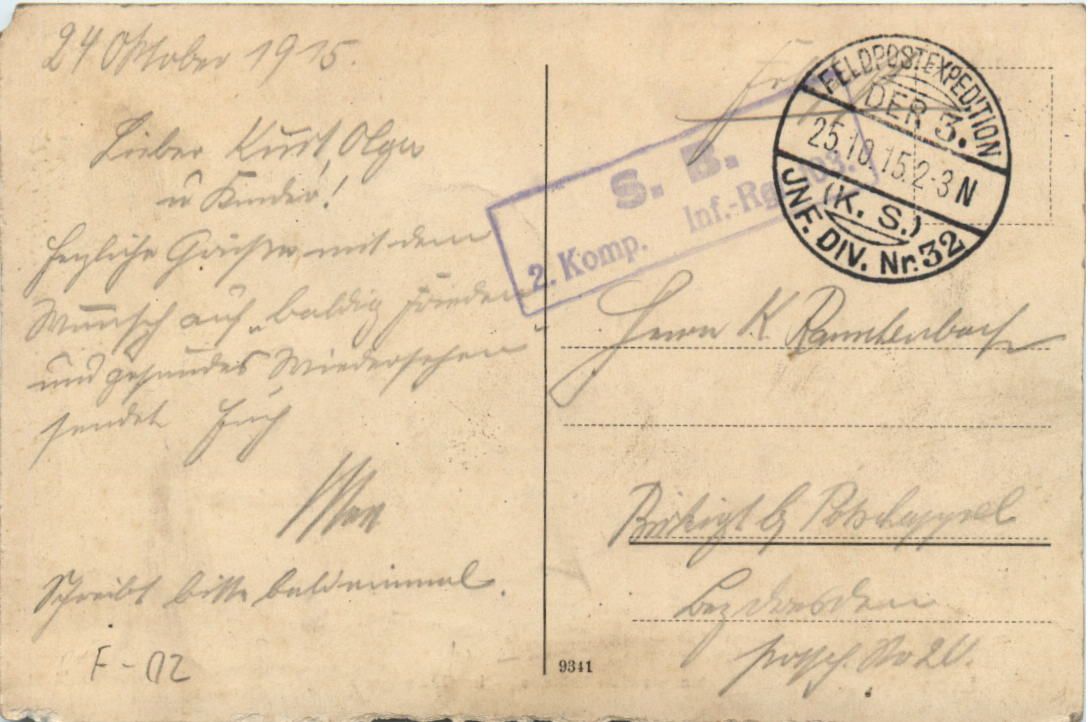 24 Oktober 1915.
Lieber Kurt, Olga
u Kinder!
Herzliche Grüße mit dem
Wunsch auf "baldig Frieden
und gesundes Wiedersehen"
sendet Euch
Schreibt bitte bald einmal.
F-02
S. B.
2. Komp. Inf.-Reg. 103.
FELDPOSTEXPEDITION
DER 3.
25.10.15.2-3N
(K. S.)
JNF. DIV. Nr. 32
Herrn K
Birkigt b/ Potschappel
Bez Dresden
9341